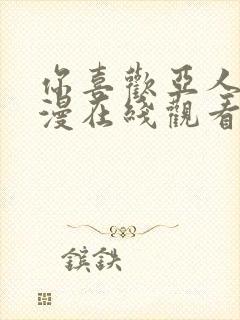 你喜歡亞人
漫在綫觀看
鑌鉄